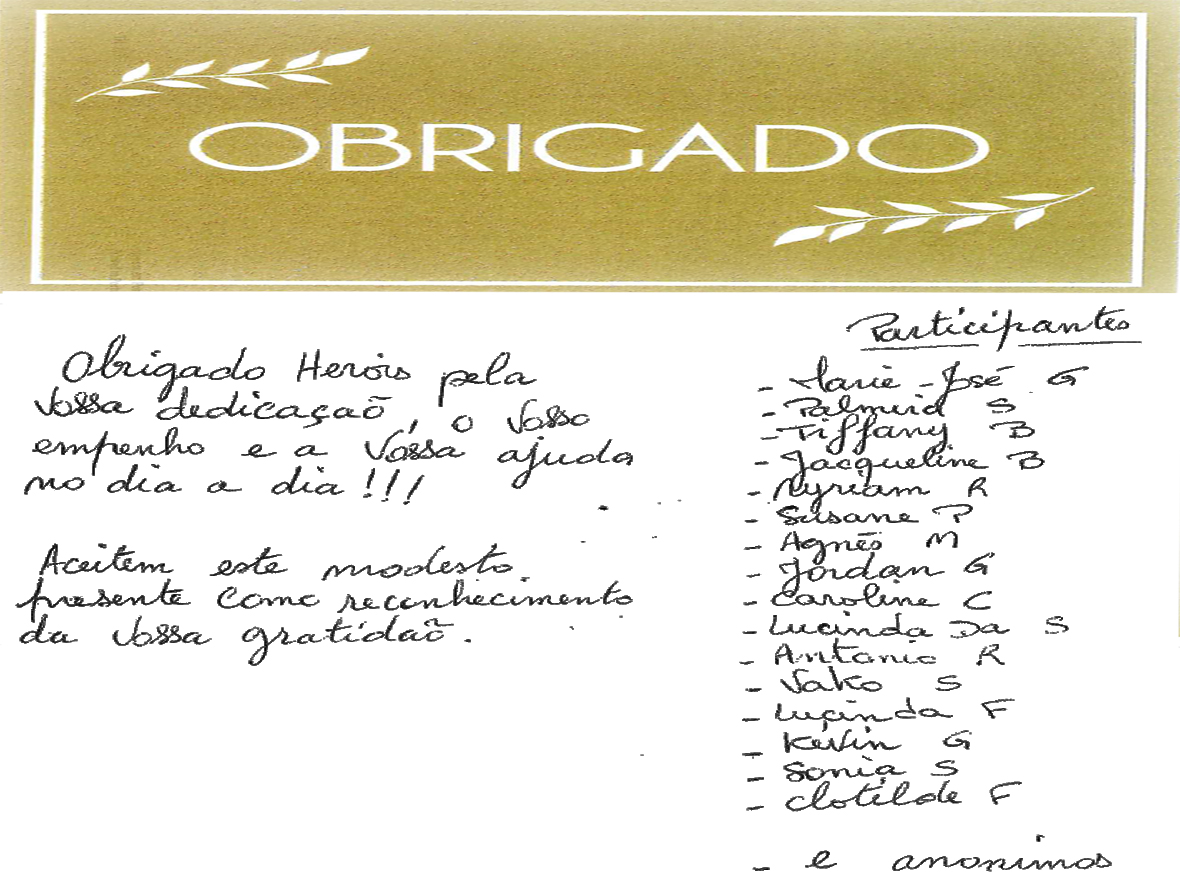 OBRIGADO
Obrigado Herois pela
Vossa dedicaçaõ, o Vosso
empenho e a Vossa ajuda
no dia a dia !!!
Aceitem este modesto
presente como reconhecimento
da Vossa gratidaõ.
Participantes
- Marie-José G
- Palmira S
- Tiffany B
- Jacqueline B
- Myriam R
- Susane P
- Agnès M
- Jordan G
- Caroline C
- Lucinda Da S
- Antonio R
- Vako S
- Luçinda F
- Kevin G
- Sonia S
- Clotilde F
- e anonimos